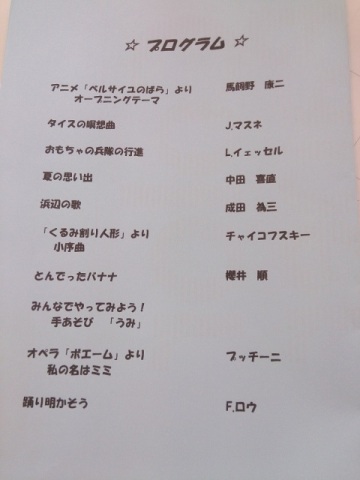 ☆ プログラム ☆
アニメ「ベルサイユのばら」より 馬飼野 康二
オープニングテーマ
タイスの瞑想曲 J.マスネ
おもちゃの兵隊の行進 L.イェッセル
夏の思い出 中田 喜直
浜辺の歌 成田 為三
「くるみ割り人形」より チャイコフスキー
小序曲
とんでったバナナ 櫻井 順
みんなでやってみよう!
手あそび 「うみ」
オペラ「ボエーム」より プッチーニ
私の名はミミ
踊り明かそう F.ロウ